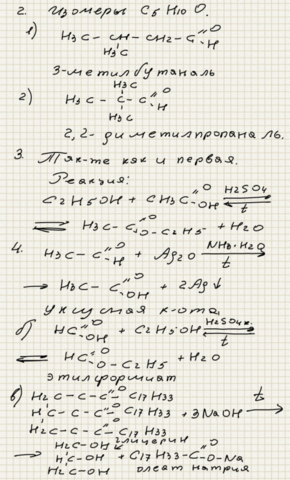 2. Изомеры C5H10O.
1) H3C - CH - CH2 - C=O
H
H3C
3-метилбутаналь
H3C
2) H3C - C - C=O
H
H3C
2,2-диметилпропаналь.
3. Так-же как и первая.
Реакция:
C2H5OH + CH3C=O OH H2SO4 ⇄ t
⇄ H3C - C=O O-C2H5 + H2O
4. H3C - C=O H + Ag2O NH3·H2O → t
→ H3C - C=O OH + 2Ag↓
уксусная к-ота
б) HC=O OH + C2H5OH H2SO4к. ⇄ t
⇄ HC=O O - C2H5 + H2O
этилформиат
в) H2C - C - C=O C17H33
HC - C - C=O C17H33 + 3NaOH t →
H2C - C - C=O C17H33
H2C-OH глицерин
→ HC-OH + C17H33-C=O O-Na
H2C-OH олеат натрия